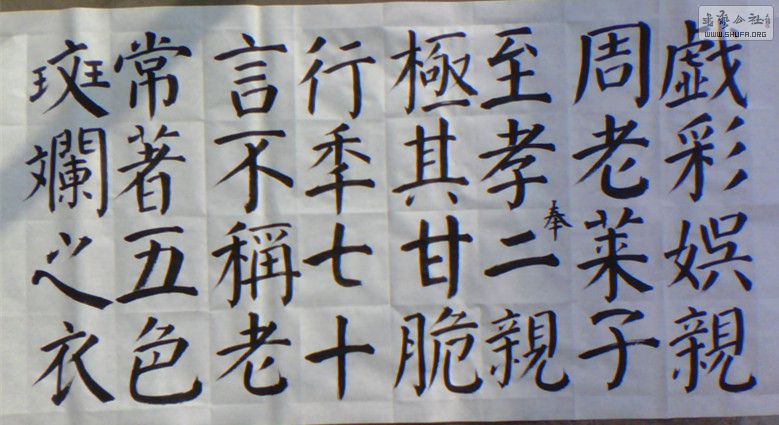 戯彩娛親
周老莱子
至孝奉二親
極其甘脆
行秊七十
言不稱老
常著五色
斑斕之衣
書藝公社
WWW.SHUFA.ORG